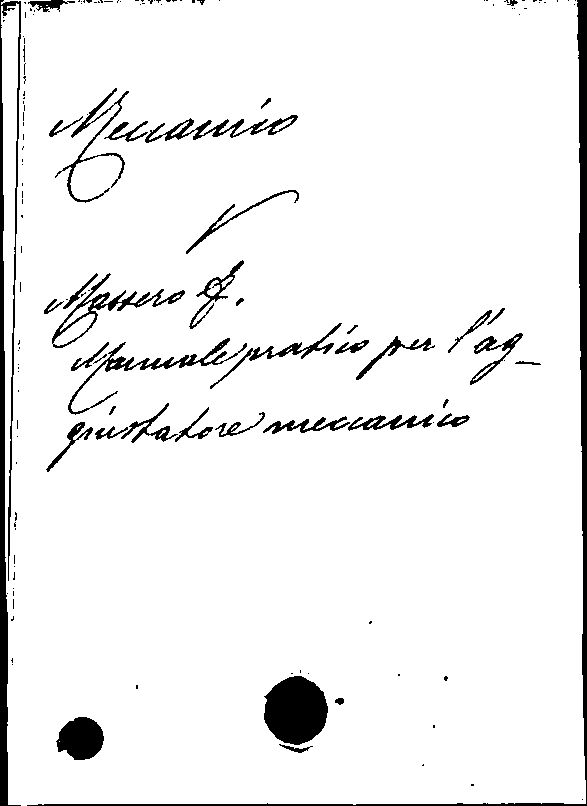 Meccanico
V
Massero F.
Manuale pratico per l'ag-
giustatore meccanico